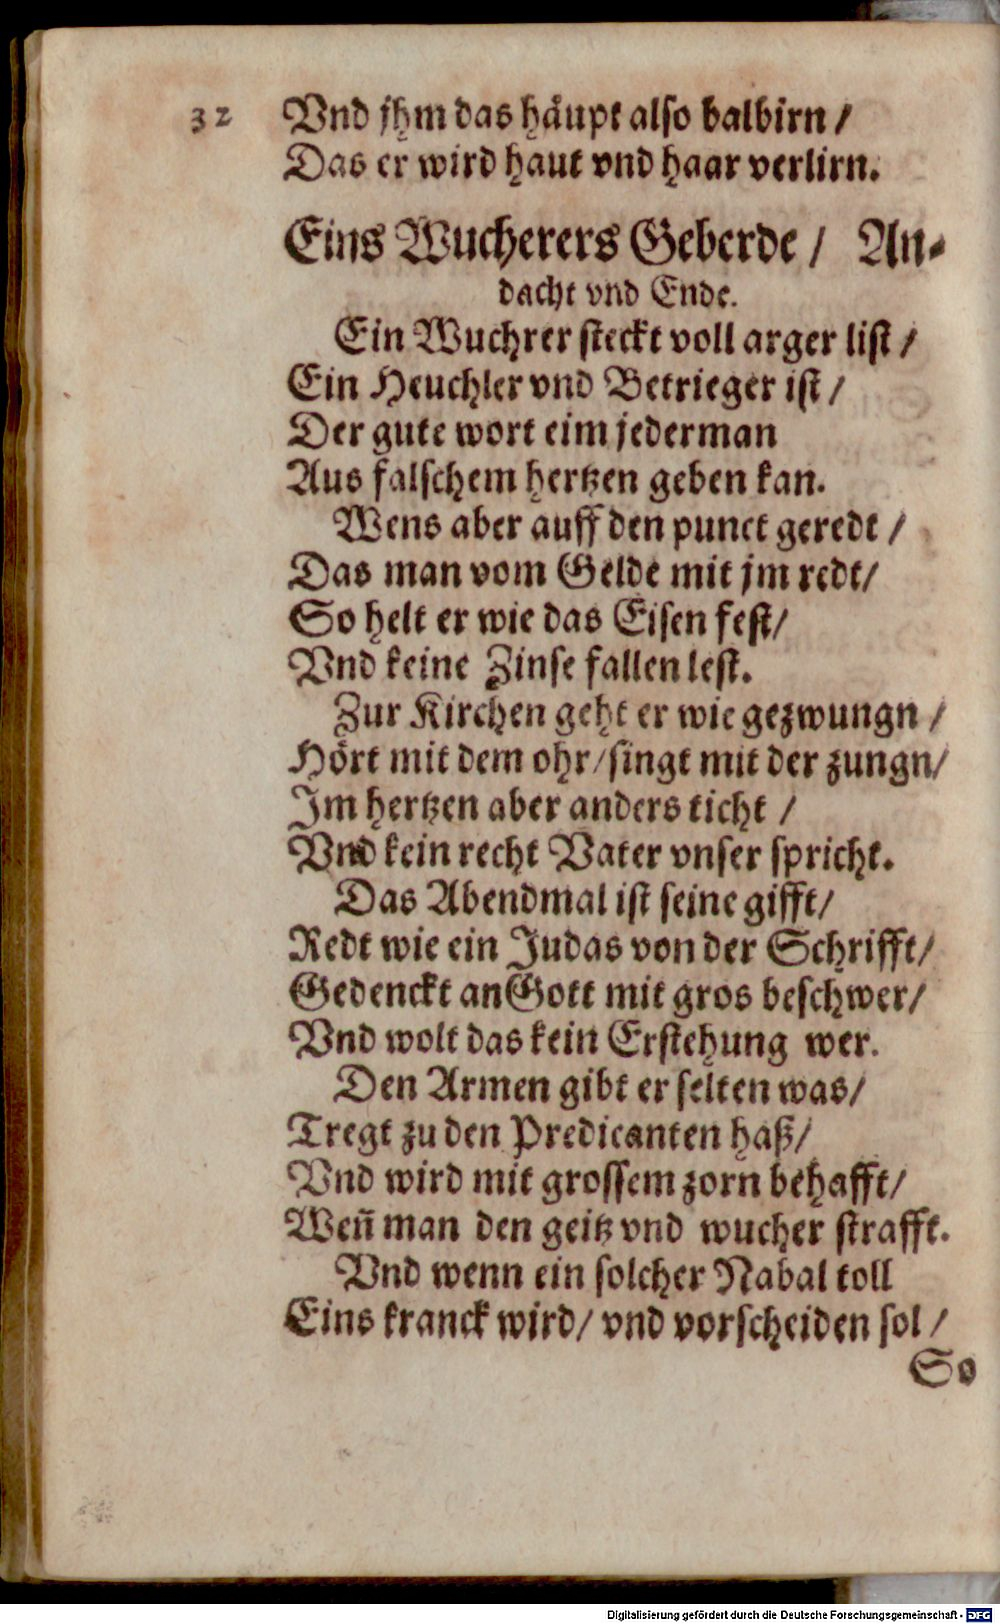 32 Vnd jhm das håupt also balbirn /
Das er wird haut vnd haar verlirn.
Eins Wucherers Geberde / An-
dacht vnd Ende.
Ein Wuchrer steckt voll arger list /
Ein Heuchler vnd Betrieger ist /
Der gute wort eim jederman
Aus falschem hertzen geben kan.
Wens aber auff den punct geredt /
Das man vom Gelde mit jm redt/
So helt er wie das Eisen fest/
Vnd keine Zinse fallen lest.
Zur Kirchen geht er wie gezwungn /
Hört mit dem ohr/singt mit der zungn/
Im hertzen aber anders ticht /
Vnd kein recht Vater vnser spricht.
Das Abendmal ist seine gifft/
Redt wie ein Judas von der Schrifft/
Gedenckt anGott mit gros beschwer/
Vnd wolt das kein Erstehung wer.
Den Armen gibt er selten was/
Tregt zu den Predicanten haß/
Vnd wird mit grossem zorn behafft/
Weñ man den geitz vnd wucher strafft.
Vnd wenn ein solcher Nabal toll
Eins kranck wird/ vnd vorscheiden sol /
So
Digitalisierung gefördert durch die Deutsche Forschungsgemeinschaft - DFG